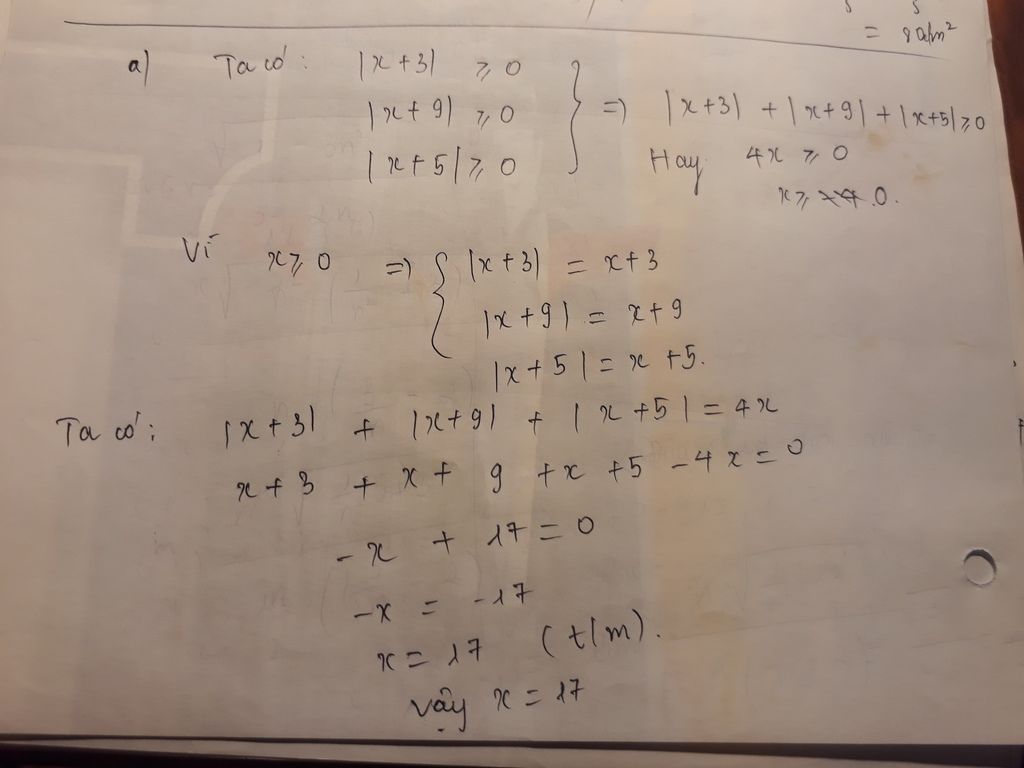 = 8 dm²
a) Ta có: |x+3| ⩾ 0
|x+9| ⩾ 0 } => |x+3| + |x+9| + |x+5| ⩾ 0
|x+5| ⩾ 0 Hay 4x ⩾ 0
x ⩾ 0.
Vì x ⩾ 0 => { |x+3| = x+3
|x+9| = x+9
|x+5| = x+5.
Ta có: |x+3| + |x+9| + |x+5| = 4x
x+3 + x+ 9 +x +5 -4x = 0
-x + 17 = 0
-x = -17
x = 17 (t/m).
vậy x = 17